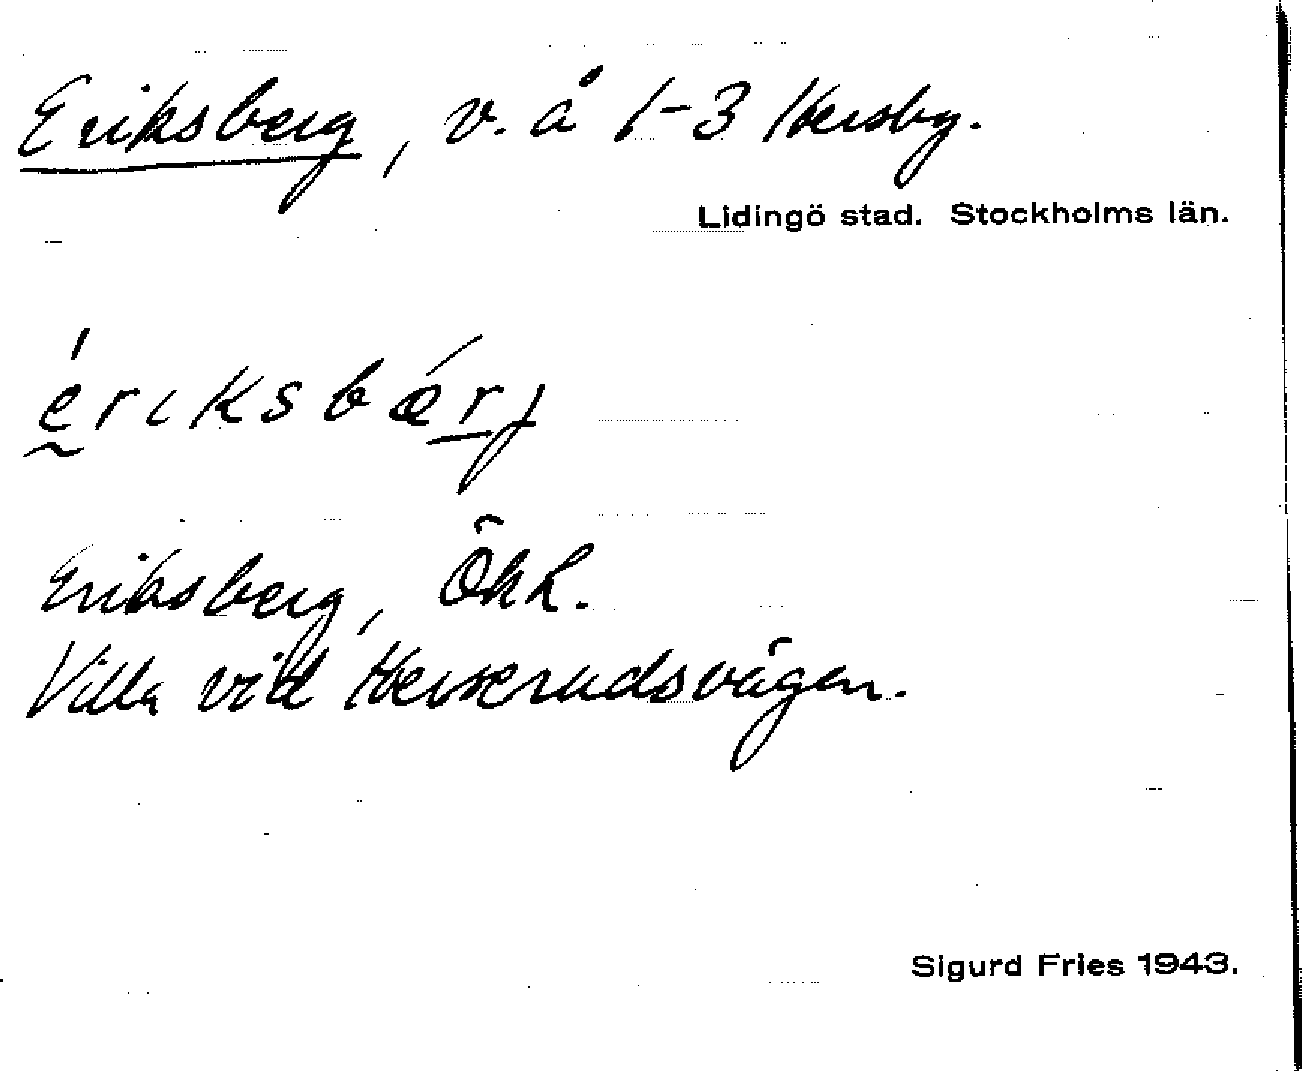 Eriksberg, v. å 1-3 Hersby.
Lidingö stad. Stockholms län.
ḛ́riksbǽrj
Eriksberg, Ökk.
Villa vid Herserudsvägen.
Sigurd Fries 1943.